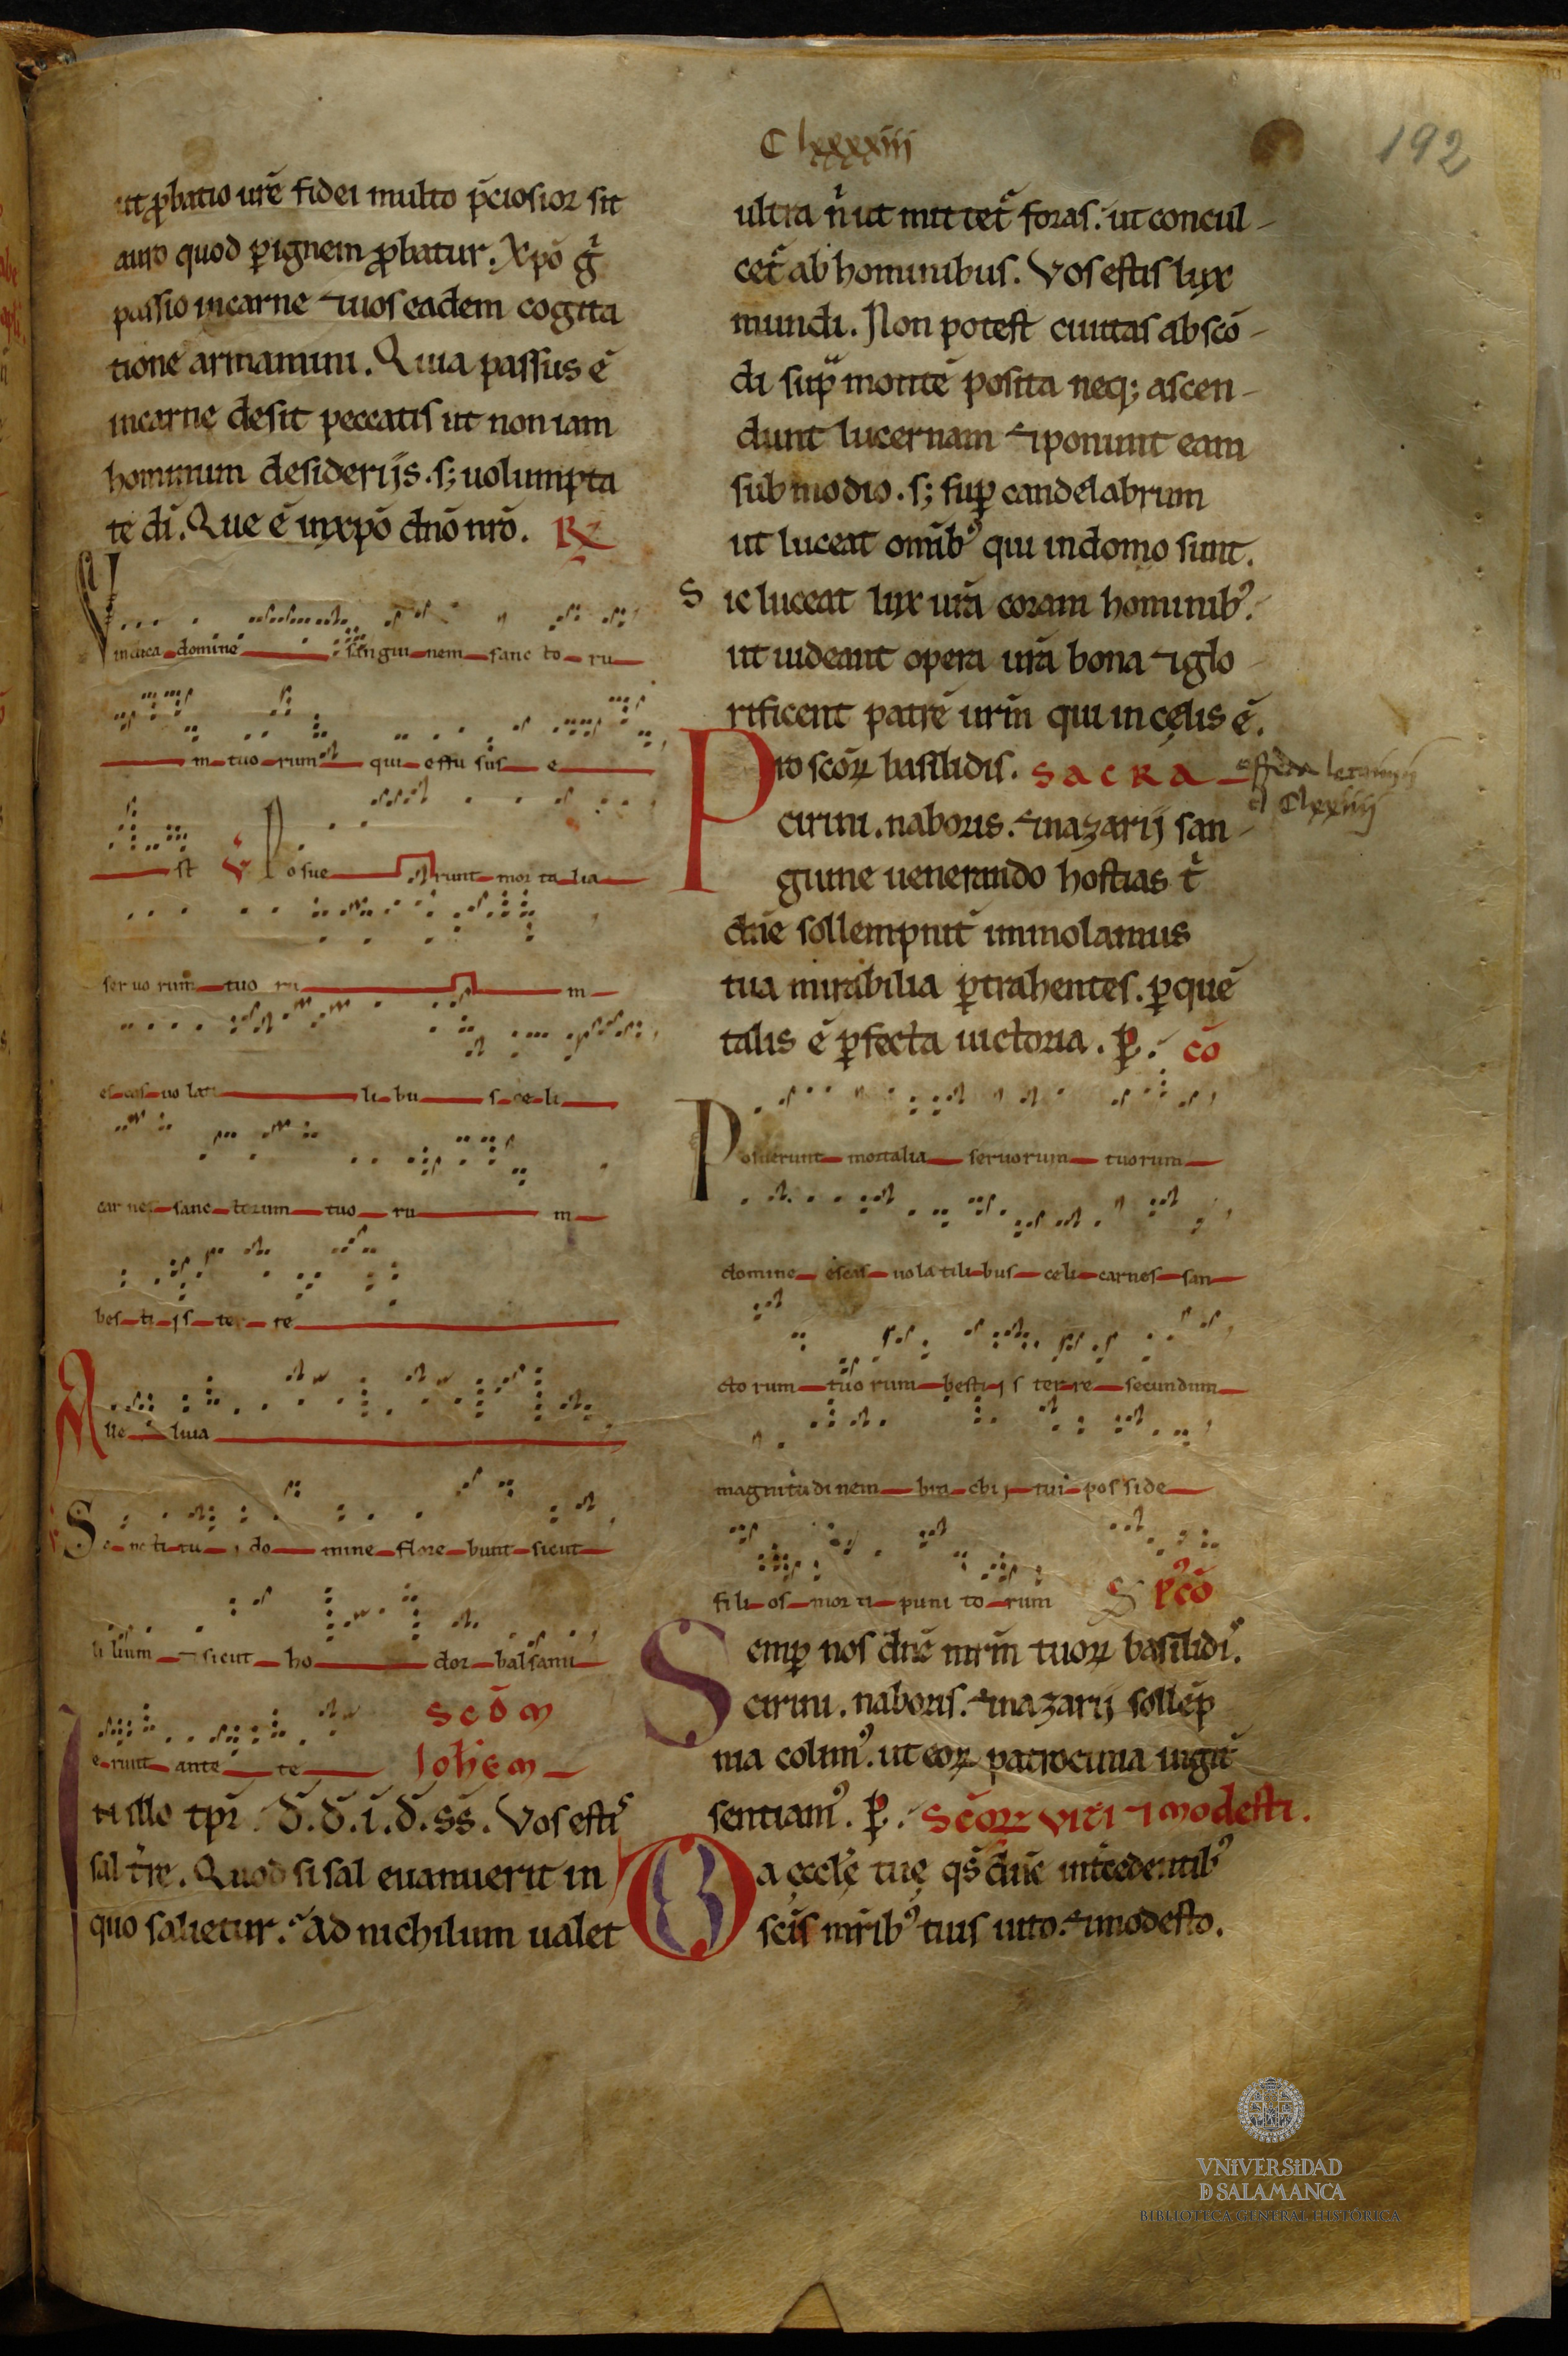 Clxxxxiii
192
ut ꝓbatio ur̄e fidei multo p̄ciosior sit
auro quod ꝑ ignem ꝓbatur. Xp̄o g̍
passio in carne ⁊ uos eadem cogita
tione armamini. Quia passus ē
in carne desit peccatis ut non iam
hominum desiderijs. s; uolumpta
te dī. Que ē in xp̄o dn̄o nr̄o. R̷
Vindica domine sanguinem sanctoru
m tuorum qui effu sus e
st V̷ Posue runt mor ta lia
ser uo rum tuo ru m
escas uo lati li bu s ce li
car nes sanc torum tuo ru m
bes ti js te r re
Alle luia
Sancti tu i do mine flore bunt sicut
li lium ⁊ sicut ho dor balsami
erunt ante te Sc̄dm
Ioh̄em
In illo tp̄r. d̄. d̄. i. d̄. ss̄. Vos esti
sal t̄re. Quod si sal euanuerit in
quo salietur. Ad nichilum ualet
ultra n̍ ut mittet̄ foras. ut concul-
cet̄ ab hominibus. Vos estis lux
mundi. Non potest ciuitas abscō-
di sup̄ montē posita neq; ascen-
dunt lucernam ⁊ ponunt eam
sub modio. s; suꝑ candelabrum
ut luceat om̄ib' qui in domo sunt.
Sic luceat lux ur̄a coram hominib'.
ut uideant opera ur̄a bona ⁊ glo-
rificent patrē ur̄m qui in celis ē.
Pro sc̄oꝝ basilidis. SACRA
cirini. naboris. ⁊ nazarij san-
guine uenerando hostias t̍
dn̄e sollempnit̄ immolamus
tua mirabilia ꝑtrahentes. ꝑ quē
talis ē ꝑfecta uictoria. ꝑ. cō
Posuerunt mortalia seruorum tuorum
domine escas uola tili bus celi carnes san
cto rum tuo rum besti j s ter re secundum
magnitudi nem bra chi j tui pos side
fili os mor ti puni to rum S p'cō
Semꝑ nos dn̄e mr̄m tuoꝝ basilidi'.
cirini. naboris. ⁊ nazarij sollēp
nia colim'. ut eoꝝ patrocinia iugit̄
sentiam'. ꝑ. Sc̄oꝝ viti ⁊ modesti.
Da eccl̄e tue qs̄ dn̄e int̄cedentib'
sc̄is mr̄ib' tuis uito. ⁊ modesto.
VNiVERSiDAD
D SALAMANCA
BIBLIOTECA GENERAL HISTÓRICA